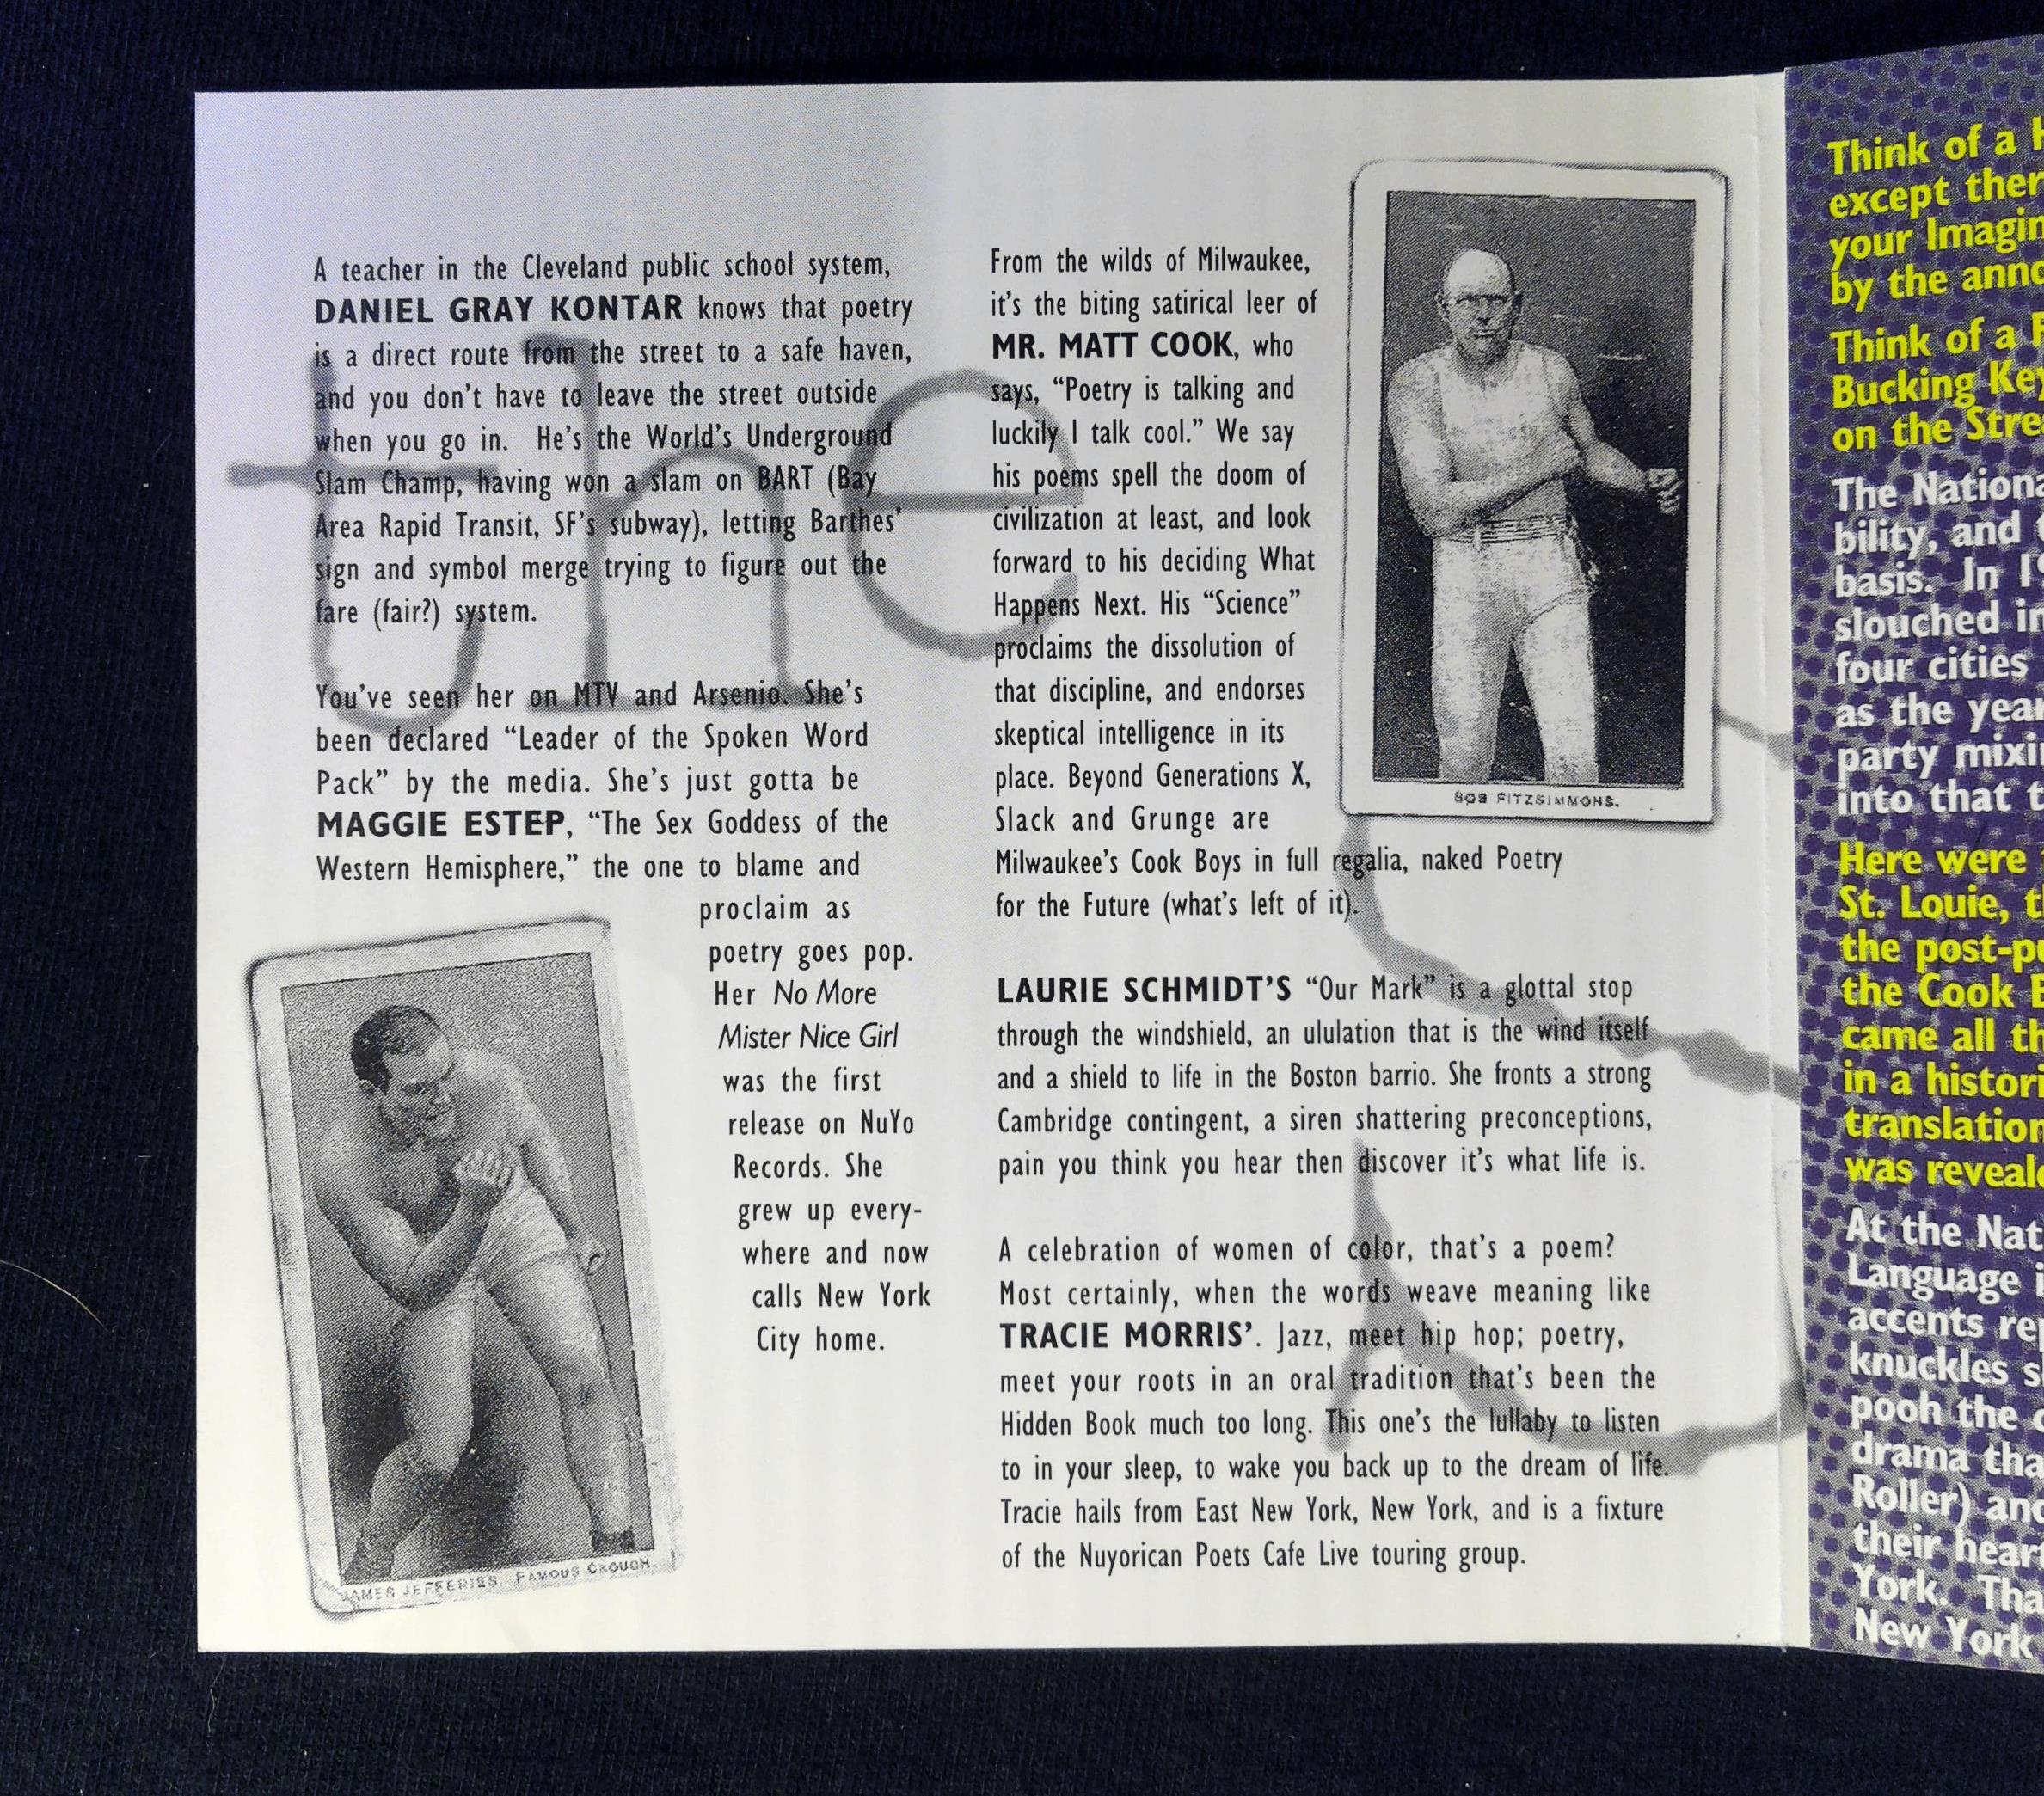 A teacher in the Cleveland public school system,
DANIEL GRAY KONTAR knows that poetry
is a direct route from the street to a safe haven,
and you don't have to leave the street outside
when you go in. He's the World's Underground
Slam Champ, having won a slam on BART (Bay
Area Rapid Transit, SF's subway), letting Barthes'
sign and symbol merge trying to figure out the
fare (fair?) system.
You've seen her on MTV and Arsenio. She's
been declared “Leader of the Spoken Word
Pack” by the media. She's just gotta be
MAGGIE ESTEP, “The Sex Goddess of the
Western Hemisphere,” the one to blame and
proclaim as
poetry goes pop.
Her No More
Mister Nice Girl
was the first
release on NuYo
Records. She
grew up every-
where and now
calls New York
City home.
JAMES JEFFERIES. FAMOUS CROUCH.
the
From the wilds of Milwaukee,
it's the biting satirical leer of
MR. MATT COOK, who
says, “Poetry is talking and
luckily I talk cool.” We say
his poems spell the doom of
civilization at least, and look
forward to his deciding What
Happens Next. His “Science”
proclaims the dissolution of
that discipline, and endorses
skeptical intelligence in its
place. Beyond Generations X,
Slack and Grunge are
Milwaukee's Cook Boys in full regalia, naked Poetry
for the Future (what's left of it).
BOB FITZSIMMONS.
LAURIE SCHMIDT'S “Our Mark” is a glottal stop
through the windshield, an ululation that is the wind itself
and a shield to life in the Boston barrio. She fronts a strong
Cambridge contingent, a siren shattering preconceptions,
pain you think you hear then discover it's what life is.
A celebration of women of color, that's a poem?
Most certainly, when the words weave meaning like
TRACIE MORRIS'. Jazz, meet hip hop; poetry,
meet your roots in an oral tradition that's been the
Hidden Book much too long. This one's the lullaby to listen
to in your sleep, to wake you back up to the dream of life.
Tracie hails from East New York, New York, and is a fixture
of the Nuyorican Poets Cafe Live touring group.
Think of a
except
your
by the
Think of a
Bucking
on the
The
bility, and
basis. In
slouched
four cities
as the
party
into that
Here were
St. Louie,
the
the Cook
came all
in a
was
At the
Language
accents
knuckles
pooh the
drama
Roller)
their
York.
New York